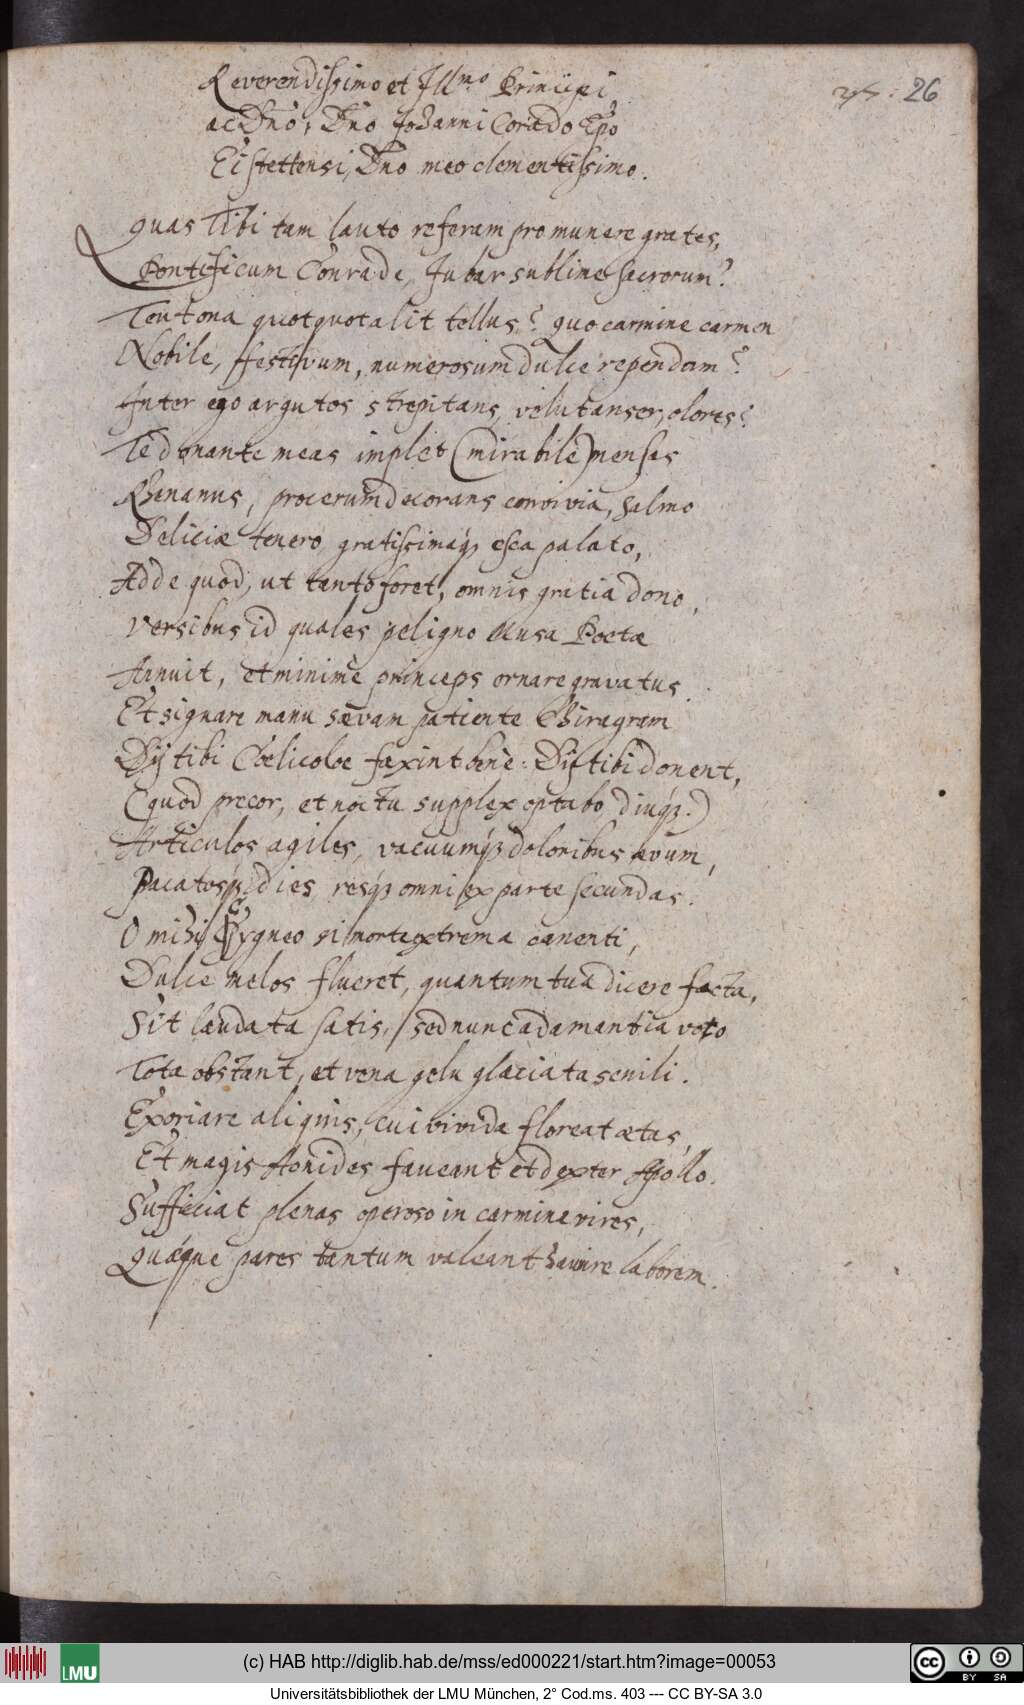 Reverendissimo et Ill.mo Principi
26
ac Dno, Dno Johanni Corado Epo
Eistettensi, Dno meo clementissimo.
Quas Tibi tam lauto referam pro munere grates,
Pontificum Conrade, Jubar sublime sacrorum?
Teutona quotquot alit tellus? quo carmine carmen
Nobile, ffestivum, numerosum dulce rependam?
Inter ego argutos strepitans, velut anser, olores?
Te donante meas implet (mirabile) mensas
Rhenanus, procerum decorans convivia, Salmo
Deliciae tenero, gratissimaq; esca palato,
Adde quod, ut tanto foret, omnis gratia dono,
Versibus id quales peligno Musa Poetae
Annuit, et minimè princeps ornare gravatus
Et signare manu saevam patiente Chiragram
Dij tibi Coelicolae faxint benè: Dij tibi donent,
(quod precor, et noctu supplex optabo, diuq;.)
Articulos agiles, vacuumq; doloribus aevum,
Pacatosq; dies resq; omni ex parte secundas.
O mihi Cygneo si morte extrema canenti,
Dulce melos flueret, quantum tua dicere facta,
Sit laudata satis, sed nunc adamantia voto
Tota obstant, et vena gelu glaciata senili.
Exoriare aliquis, cui vivida floreat aetas,
Et magis Aonides faveant et dexter Apollo.
Sufficiat plenas operoso in carmine vires,
Quaeque pares tantum valeant haurire laborem.
(c) HAB http://diglib.hab.de/mss/ed000221/start.htm?image=00053
LMU
cc BY SA
Universitätsbibliothek der LMU München, 2° Cod.ms. 403 --- CC BY-SA 3.0